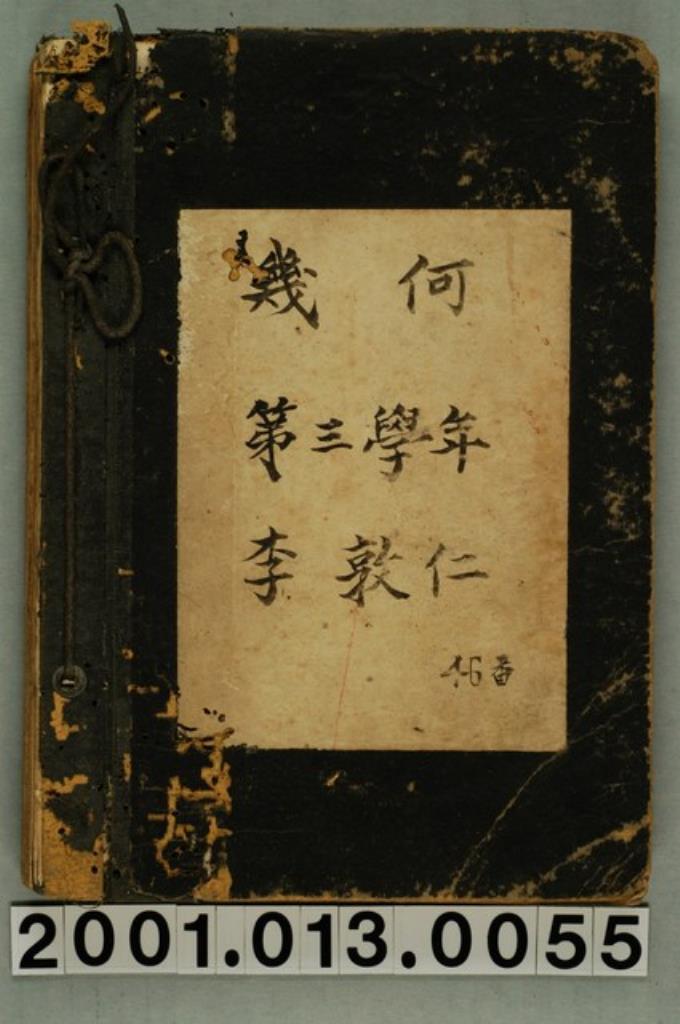 幾何
第三學年
李敦仁
46番
2001.013.0055